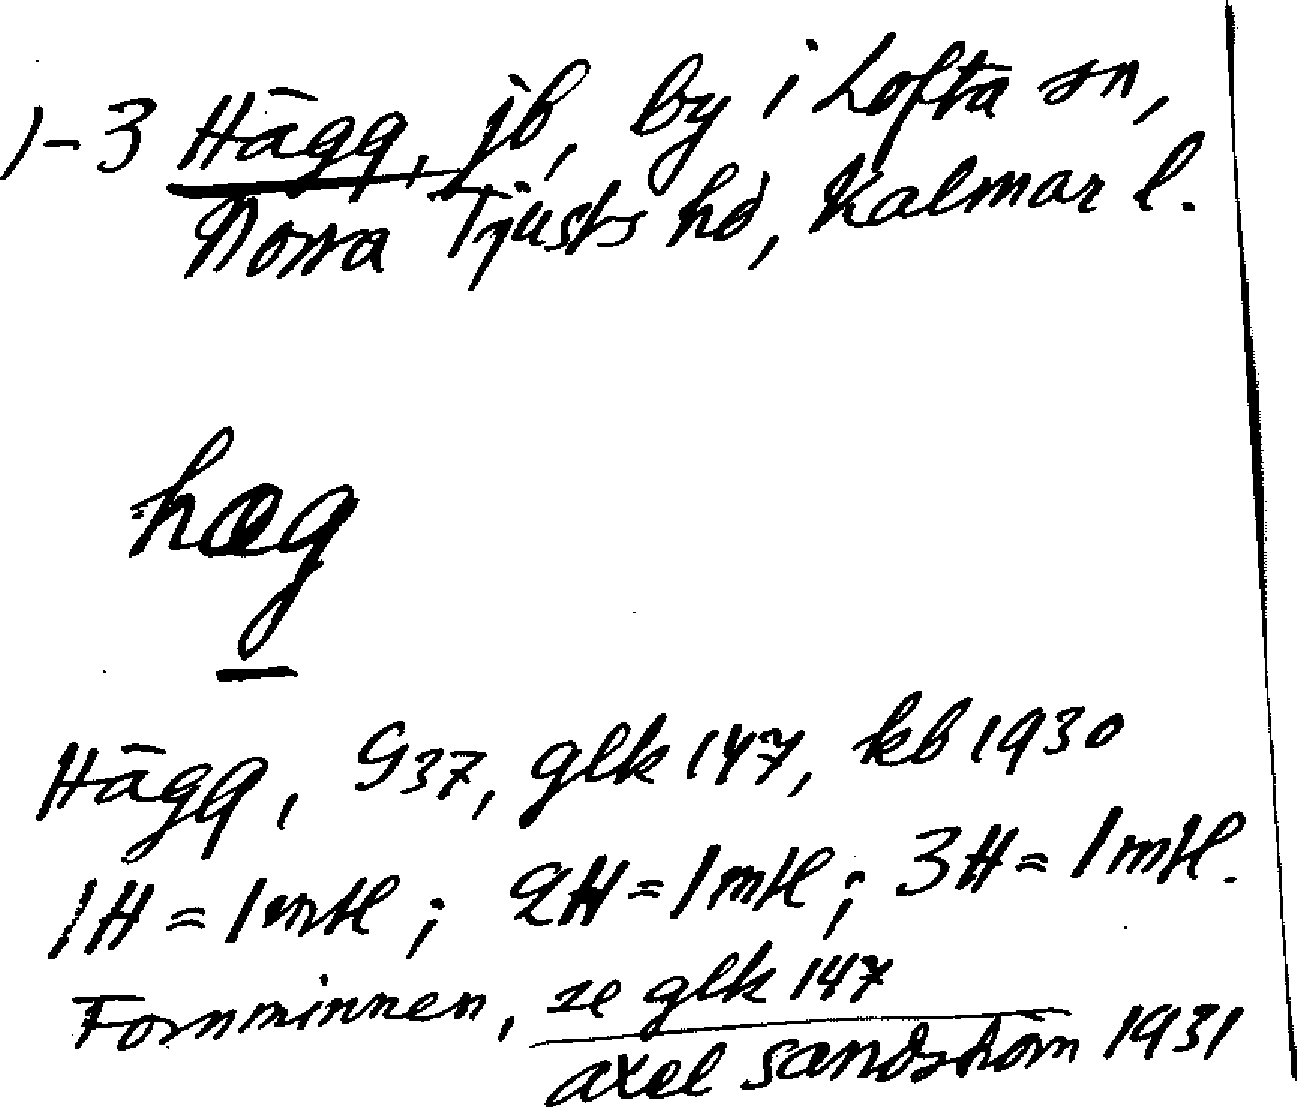 1-3 Hägg, jb, by i Lofta sn,
Norra Tjusts hd, Kalmar l.
hæg
Hägg, G37, glk 147, kb 1930
1H = 1mtl; 2H = 1mtl; 3H = 1mtl.
Fornminnen, se glk 147
axel sandström 1931